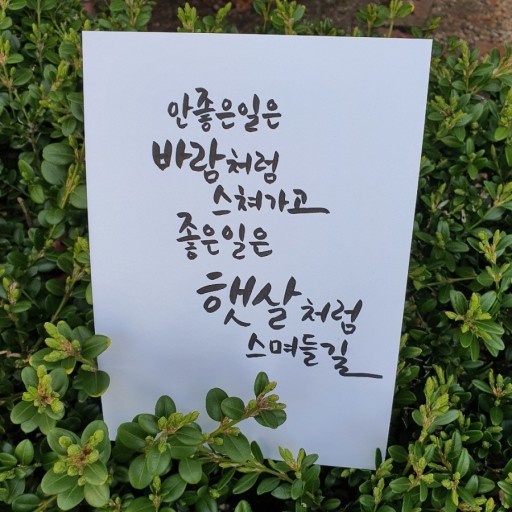 안좋은일은
바람처럼
스쳐가고
좋은일은
햇살처럼
스며들길